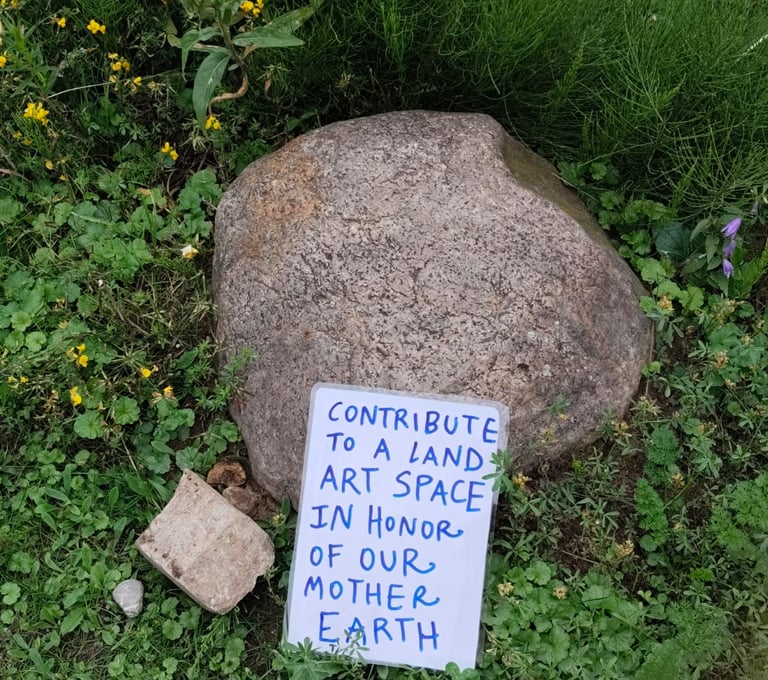 CONTRIBUTE
TO A LAND
ART SPACE
IN HONOR
OF OUR
MOTHER
EARTH